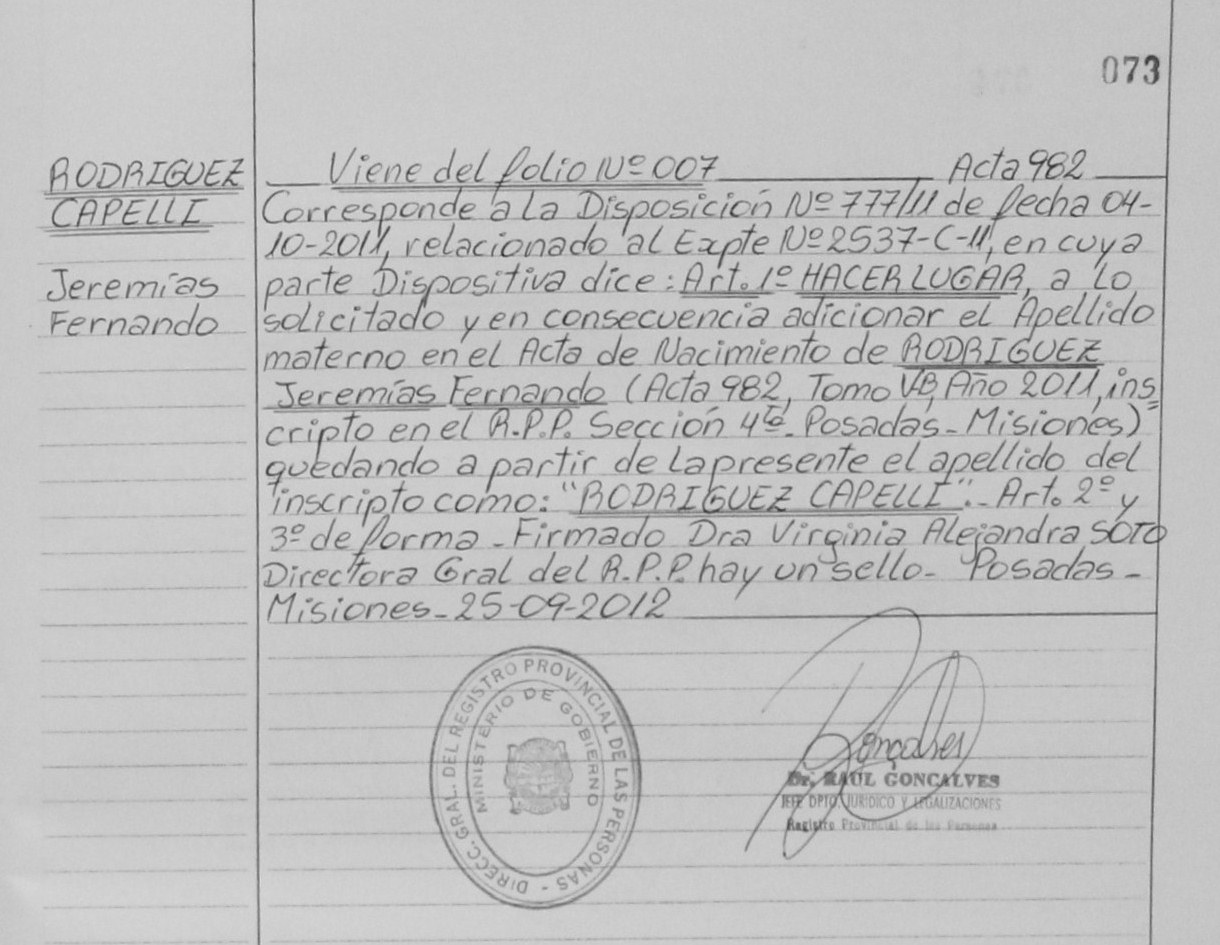 073
RODRIGUEZ
CAPELLI
Jeremías
Fernando
Viene del folio Nº 007 Acta 982
Corresponde a la Disposición Nº 777/11 de fecha 04-
10-2011, relacionado al Expte Nº 2537-C-11, en cuya
parte Dispositiva dice: Art. 1º HACER LUGAR, a lo
solicitado y en consecuencia adicionar el Apellido
materno en el Acta de Nacimiento de RODRIGUEZ
Jeremías Fernando (Acta 982, Tomo VB, Año 2011, ins=
cripto en el R.P.P. Sección 4ta. Posadas - Misiones)
quedando a partir de la presente el apellido del
inscripto como: "RODRIGUEZ CAPELLI".- Art. 2º y
3º de forma - Firmado Dra Virginia Alejandra SOTO
Directora Gral del R.P.P. hay un sello - Posadas -
Misiones - 25-09-2012
DIRECC. GRAL. DEL REGISTRO PROVINCIAL DE LAS PERSONAS -
MINISTERIO DE GOBIERNO
Gonçalves
Dr. RAUL GONCALVES
JEFE DPTO. JURIDICO Y LEGALIZACIONES
Registro Provincial de las Personas